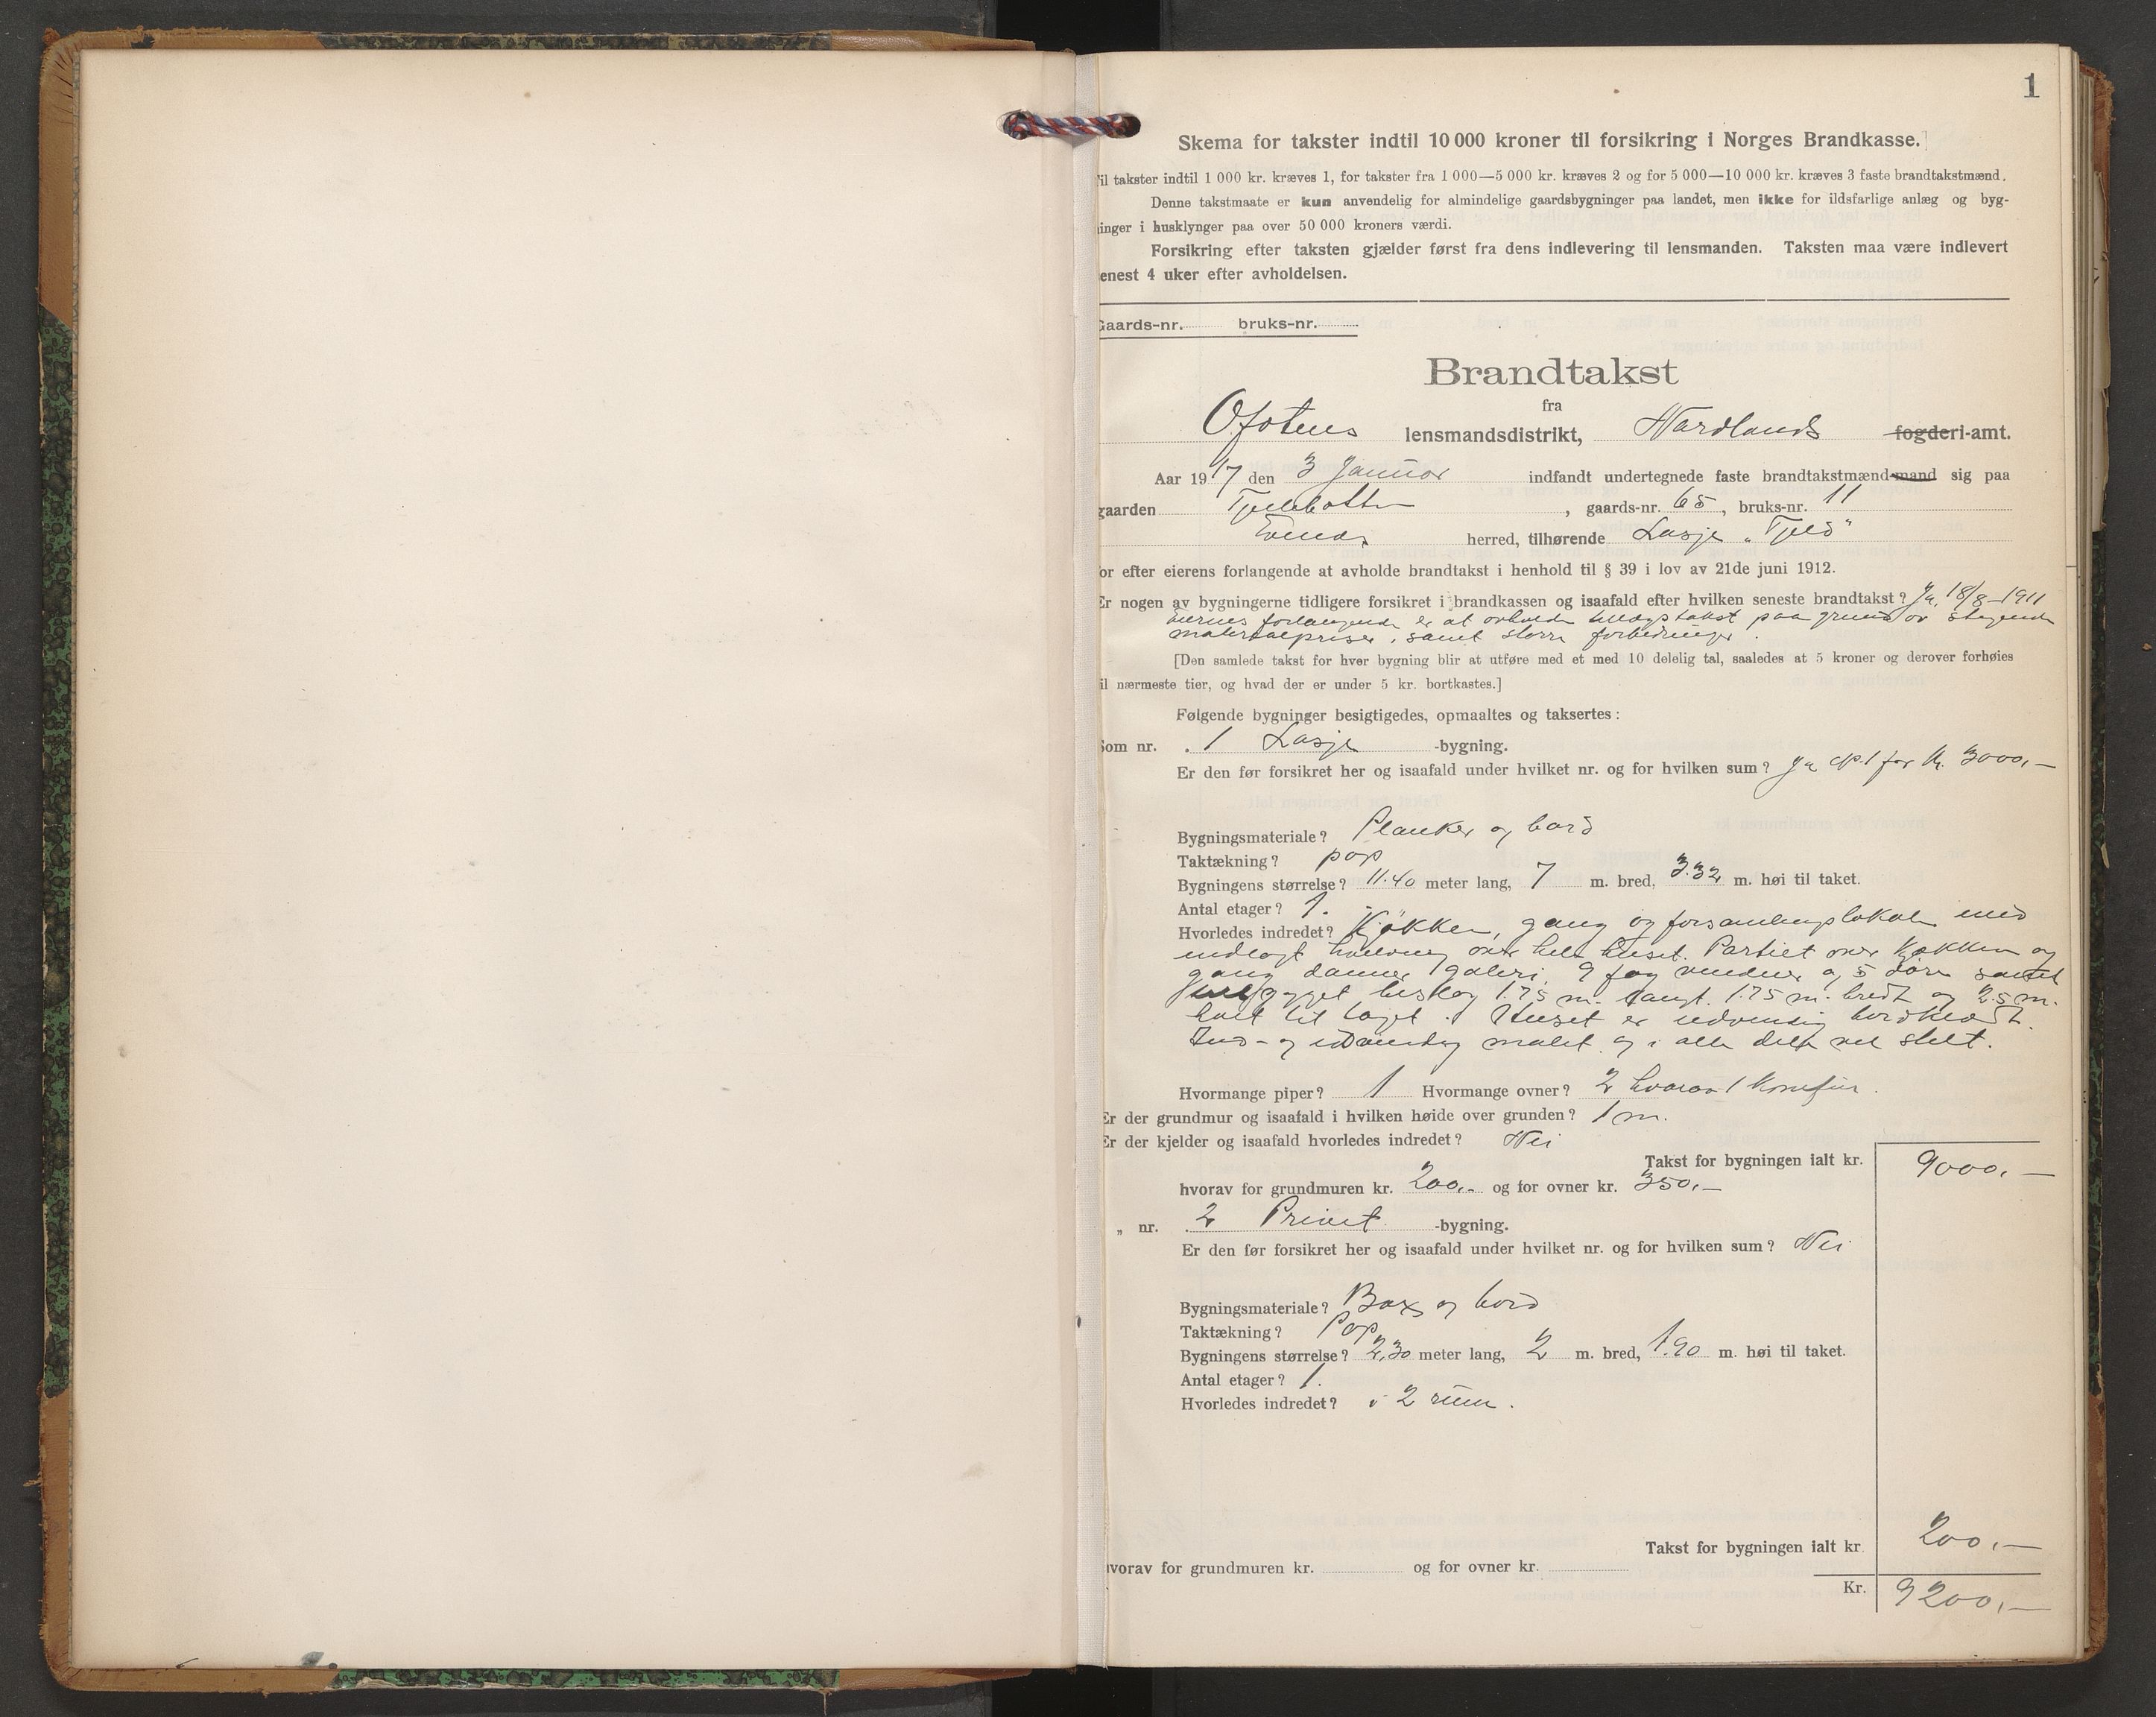 1
Skema for takster indtil 10 000 kroner til forsikring i Norges Brandkasse.
il takster indtil 1 000 kr. kræves 1, for takster fra 1 000—5 000 kr. kræves 2 og for 5 000—10 000 kr. kræves 3 faste brandtakstmænd.
Denne takstmaate er kun anvendelig for almindelige gaardsbygninger paa landet, men ikke for ildsfarlige anlæg og byg-
inger i husklynger paa over 50 000 kroners værdi.
Forsikring efter taksten gjælder først fra dens indlevering til lensmanden. Taksten maa være indlevert
enest 4 uker efter avholdelsen.
Gaards-nr. bruks-nr.
Brandtakst
fra
Ofotens lensmandsdistrikt, Nordlands fogderi-amt.
Aar 1917 den 3 Januar indfandt undertegnede faste brandtakstmænd-mand sig paa
gaarden Tjeldebotten, gaards-nr. 65, bruks-nr. 11
Evenes herred, tilhørende Losje „Tjeld"
or efter eierens forlangende at avholde brandtakst i henhold til § 39 i lov av 21de juni 1912.
Er nogen av bygningerne tidligere forsikret i brandkassen og isaafald efter hvilken seneste brandtakst? Ja, 18/8-1911
Eiernes forlangende er at avholde tillægstakst paa grund av stigende
materialpriser, samt større forbedringer.
[Den samlede takst for hver bygning blir at utføre med et med 10 delelig tal, saaledes at 5 kroner og derover forhøies
il nærmeste tier, og hvad der er under 5 kr. bortkastes.]
Følgende bygninger besigtigedes, opmaaltes og taksertes:
Som nr. 1 Losje -bygning.
Er den før forsikret her og isaafald under hvilket nr. og for hvilken sum? Ja op. 1 for kr. 3000,—
Bygningsmateriale? Planker og bord
Taktækning? pap
Bygningens størrelse? 11.40 meter lang, 7 m. bred, 3.32 m. høi til taket.
Antal etager? 1.
Hvorledes indredet? Kjøkken, gang og forsamlingslokale med
indlagt hvelving over hele huset. Partiet over Kjøkken og
gang danner galeri, 9 fag vinduer og 5 döre samt
bislag 1.75 m. langt. 1.75 m. bredt og 2.5 m.
höit til taget. Huset er udvendig bordklædt.
Ind- og udvendig malet og i alle dele vel stelt.
Hvormange piper? 1 Hvormange ovner? 2 hvorav 1 Komfur.
Er der grundmur og isaafald i hvilken høide over grunden? 1 m.
Er der kjelder og isaafald hvorledes indredet? Nei
Takst for bygningen ialt kr. 9000,—
hvorav for grundmuren kr. 200,- og for ovner kr. 350,—
„ nr. 2 Privet -bygning.
Er den før forsikret her og isaafald under hvilket nr. og for hvilken sum? Nei
Bygningsmateriale? og bord
Taktækning? Pap
Bygningens størrelse? 2,30 meter lang, 2 m. bred, 1.90 m. høi til taket.
Antal etager? 1.
Hvorledes indredet? i 2 rum.
Takst for bygningen ialt kr. 200,—
vorav for grundmuren kr. og for ovner kr.
Kr. 9200,—